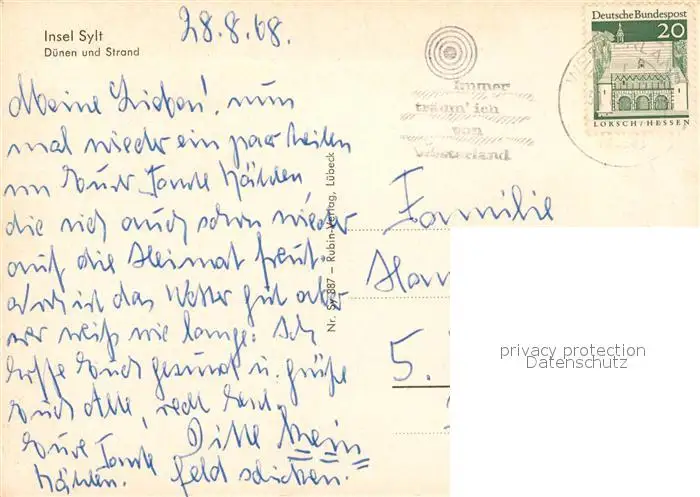 Insel Sylt
Dünen und Strand
28.8.68.
Deutsche Bundespost
20
LORSCH/HESSEN
Immer
träum' ich
von
Westerland
Meine Lieben! nun
mal wieder ein paar Zeilen
von Eurer Tante Käthen,
die sich auch schon wieder
auf die Heimat freut.
ist das Wetter gut aber
wer weiß wie lange. Ich
hoffe Euch gesund u. grüße
Euch Alle, recht herzl.
Eure Tante
Käthen.
Bitte kein
Geld schicken.
Nr. Sy 887 — Rubin-Verlag, Lübeck
Familie
5.
privacy protection
Datenschutz